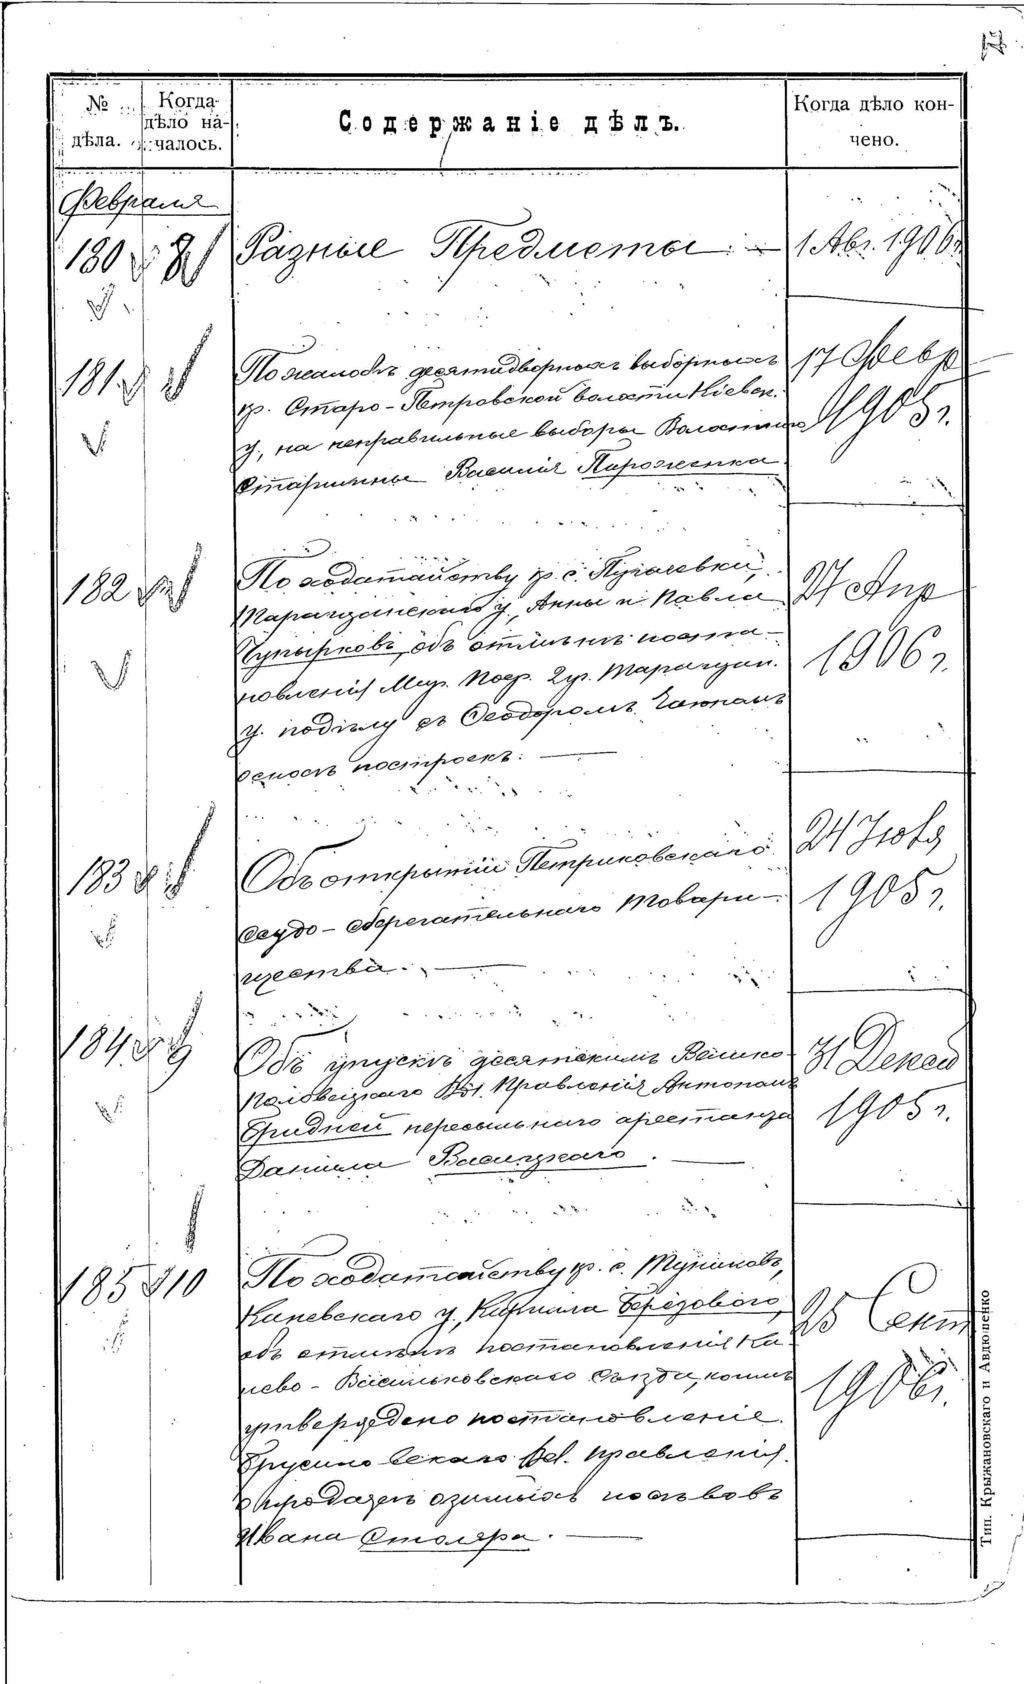 17
№ дѣла.
Когда дѣло началось.
Содержаніе дѣлъ.
Когда дѣло кончено.
Февраля
180
Разные Предметы. —
1 Авг. 1906 г.
181
По жалобѣ десятидворныхъ выборныхъ
кр. Старо-Петровской волости Кіевск.
у, на неправильные выборы Волостного
Старшины Василія Пароженка
17 Февр
1905 г.
182
По ходатайству кр. с. Пугачевки,
Таращанскаго у, Анны и Павла
Чупырковъ, объ отмѣнѣ поста-
новленія Мир. Поср. 2 уч. Таращан.
у. по дѣлу съ Ѳеодоромъ
относ построекъ. —
27 Апр
1906 г.
183
Объ открытіи Петриковскаго
ссудо-сберегательнаго товари-
щества. —
24 Іюля
1905 г.
184
9
Объ упускѣ десятскимъ Велико
Половецкаго Вол. Правленія Антономъ
Гридней пересыльнаго арестанта
Даніила —
31 Декаб
1905 г.
185
10
По ходатайству кр. с.
Каневскаго у, Кирилла Березового,
объ отмѣнѣ постановленія Ка-
нево-Васильковскаго Съѣзда, коимъ
утверждено постановленіе
Вол. Правленія.
о продажѣ озимыхъ посѣвовъ
Ивана Столяра. —
25 Сент
1906 г.
Тип. Крыжановскаго и Авдюшенко